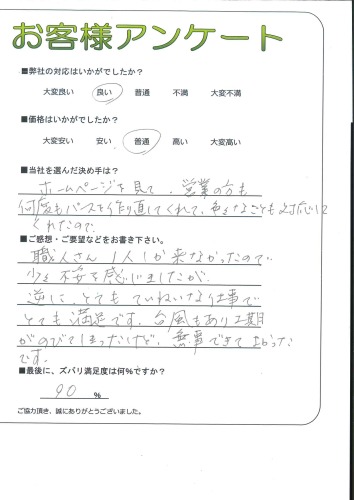 お客様アンケート
■弊社の対応はいかがでしたか?
大変良い 良い 普通 不満 大変不満
■価格はいかがでしたか?
大変安い 安い 普通 高い 大変高い
■当社を選んだ決め手は?
ホームページを見て、営業の方も
何度もパースを作り直してくれて、色々なことも対応して
くれたので。
■ご感想・ご要望などをお書き下さい。
職人さん1人しか来なかったので
少々不安を感じましたが
逆に、とてもていねいな仕事で
とても満足です。台風もあり工期
がのびてしまったけど、無事できてよかった
です。
■最後に、ズバリ満足度は何%ですか?
90 %
ご協力頂き、誠にありがとうございました。